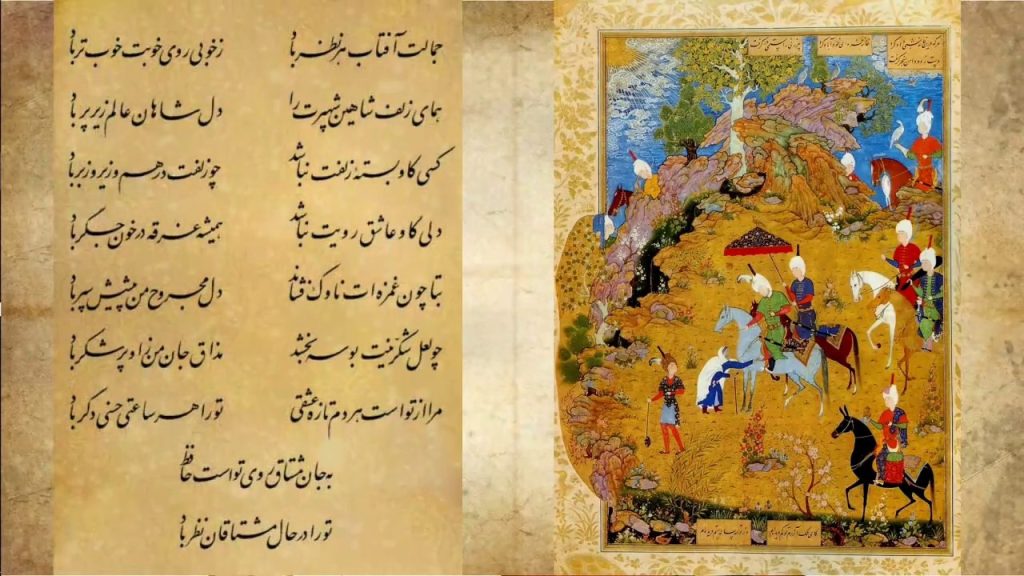 جمالت آفتاب هر نظر باد ز خوبی روی خوبت خوب تر باد
همای زلف شاهین شهپرت را دل شاهان عالم زیر پر باد
کسی کاو بستهٔ زلفت نباشد چو زلفت درهم و زیر و زبر باد
دلی کاو عاشق رویت نباشد همیشه غرقه در خون جگر باد
بتا چون غمزه ات ناوک فشاند دل مجروح من پیشش سپر باد
چو لعل شکرینت بوسه بخشد مذاق جان من ز او پر شکر باد
مرا از تو است هر دم تازه عشقی تو را هر ساعتی حسنی دگر باد
به جان مشتاق روی تو است حافظ
تو را در حال مشتاقان نظر باد